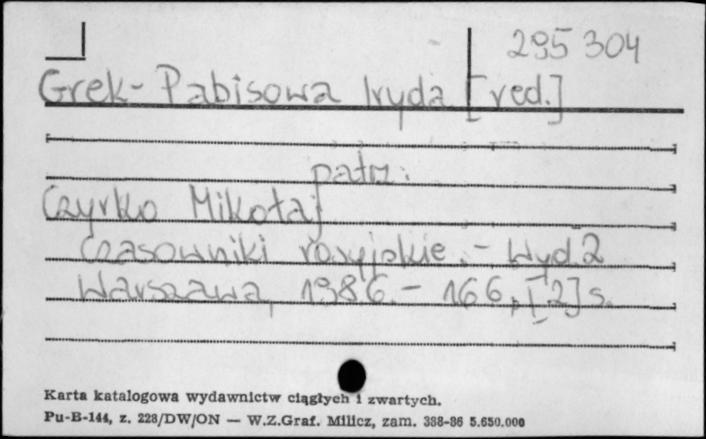 295 304
Grek-Pabisowa Iryda [red.]
patrz:
Czyrko Mikołaj
Czasowniki rosyjskie. - Wyd. 2
Warszawa, 1986. - 166, [2] s.
Karta katalogowa wydawnictw ciągłych i zwartych.
Pu-B-144, z. 228/DW/ON — W.Z.Graf. Milicz, zam. 388-86 5.650.000